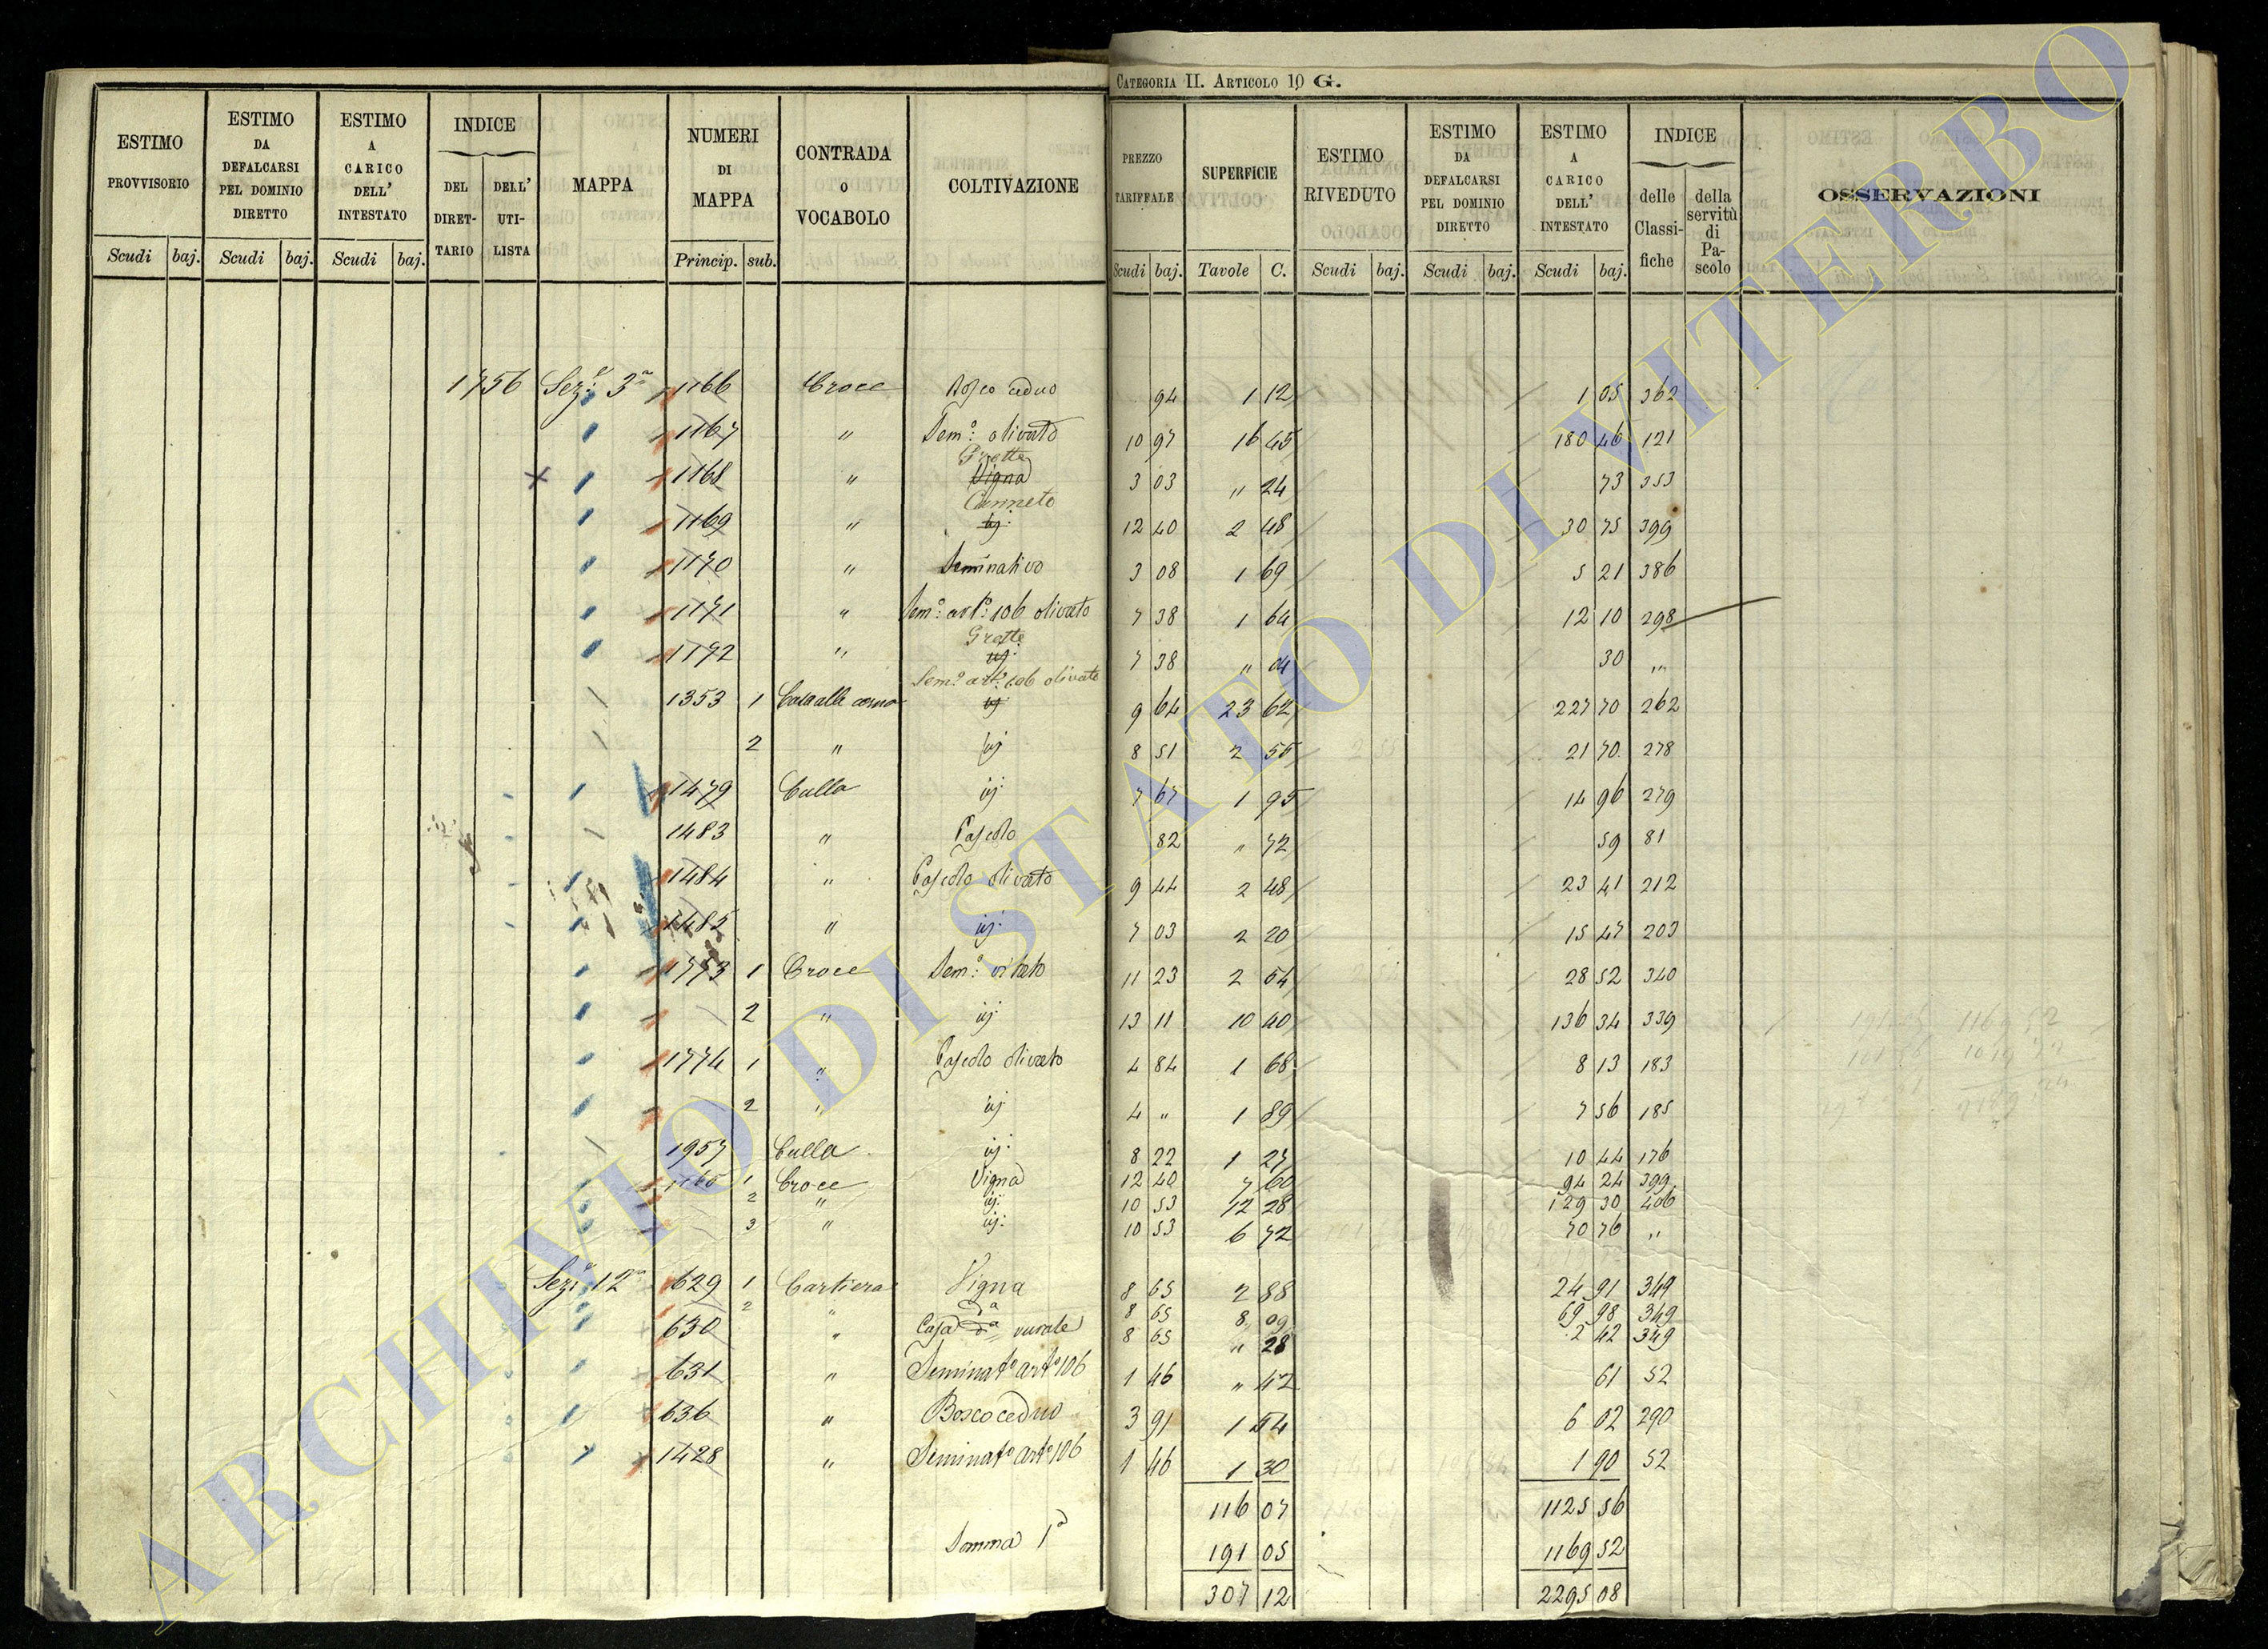 CATEGORIA II. ARTICOLO 10 G.
ESTIMO PROVVISORIO Scudi baj.
ESTIMO DA DEFALCARSI PEL DOMINIO DIRETTO Scudi baj.
ESTIMO A CARICO DELL' INTESTATO Scudi baj.
INDICE DEL DIRET-TARIO DELL' UTI-LISTA
MAPPA
NUMERI DI MAPPA Princip. sub.
CONTRADA O VOCABOLO
COLTIVAZIONE
PREZZO TARIFFALE Scudi baj.
SUPERFICIE Tavole C.
ESTIMO RIVEDUTO Scudi baj.
ESTIMO DA DEFALCARSI PEL DOMINIO DIRETTO Scudi baj.
ESTIMO A CARICO DELL' INTESTATO Scudi baj.
INDICE delle Classi-fiche della servitù di Pa-scolo
OSSERVAZIONI
1756 Sez.e 3a 1166 Croce Bosco ceduo 94 1 12 1 05 362
1167 " Sem.o olivato 10 97 16 45 180 46 121
Grotte
1168 " Vigna 3 03 " 24 73 353
Canneto
1169 " id: 12 40 2 48 30 75 399
1170 " Seminativo 3 08 1 69 5 21 386
1171 " Sem.o art.o 106 olivato 7 38 1 64 12 10 298
Grotte
1172 " id: 7 38 " 04 30 "
Sem.o art.o 106 olivato
1353 1 id 9 64 23 62 227 70 262
2 " id 8 51 2 55 21 70 278
1479 Culla id: 7 67 1 95 14 96 279
1483 " Pascolo 82 " 72 59 81
1484 " Pascolo olivato 9 44 2 48 23 41 212
1485 " id: 7 03 2 20 15 47 203
1773 1 Croce Sem.o vitato 11 23 2 54 28 52 340
2 " id 13 11 10 40 136 34 339
1774 1 " Pascolo olivato 4 84 1 68 8 13 183
2 " id 4 " 1 89 7 56 185
1957 Culla id: 8 22 1 27 10 44 176
1165 1 Croce Vigna 12 40 7 60 94 24 399
2 " id: 10 53 12 28 129 30 406
3 " id: 10 53 6 72 70 76 "
Sez.e 12a 629 1 Cartiera Vigna 8 65 2 88 24 91 349
2 " da 8 65 8 09 69 98 349
630 " Casa da rurale 8 65 " 28 2 42 349
631 " Seminato arto 106 1 46 " 42 61 52
636 " Bosco ceduo 3 91 1 54 6 02 290
1428 " Seminato arto 106 1 46 1 30 1 90 52
116 07 1125 56
Somma 1a 191 05 1169 52
307 12 2295 08
ARCHIVIO DI STATO DI VITERBO